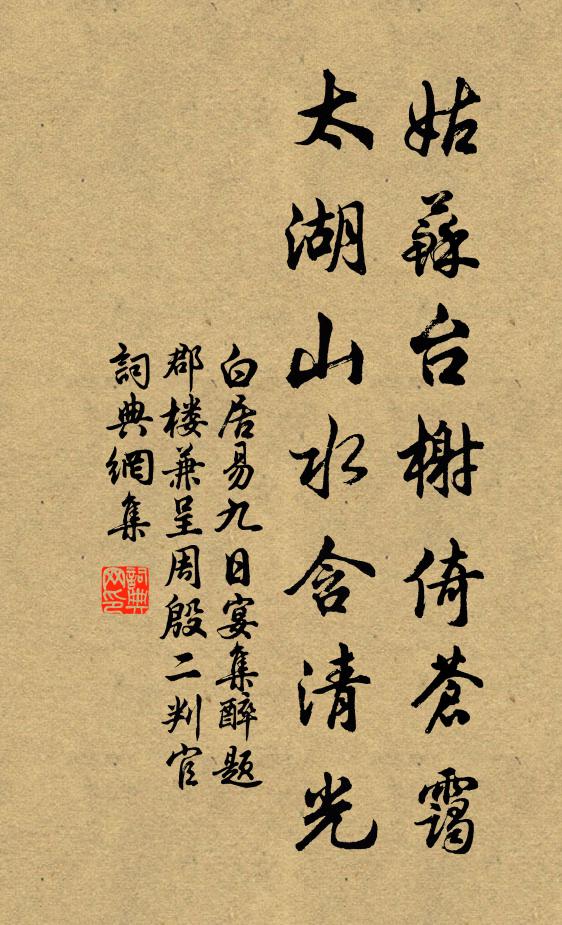 姑蘇台榭倚蒼靄
太湖山水含清光
白居易九日宴集醉题
郡楼兼呈周殷二判官
詞典網集
詞典
网印